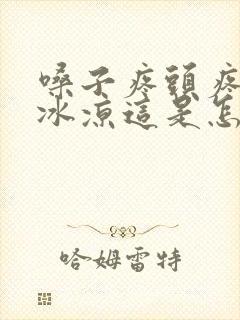 嗓子疼頭疼
冰涼這是怎
哈姆雷特